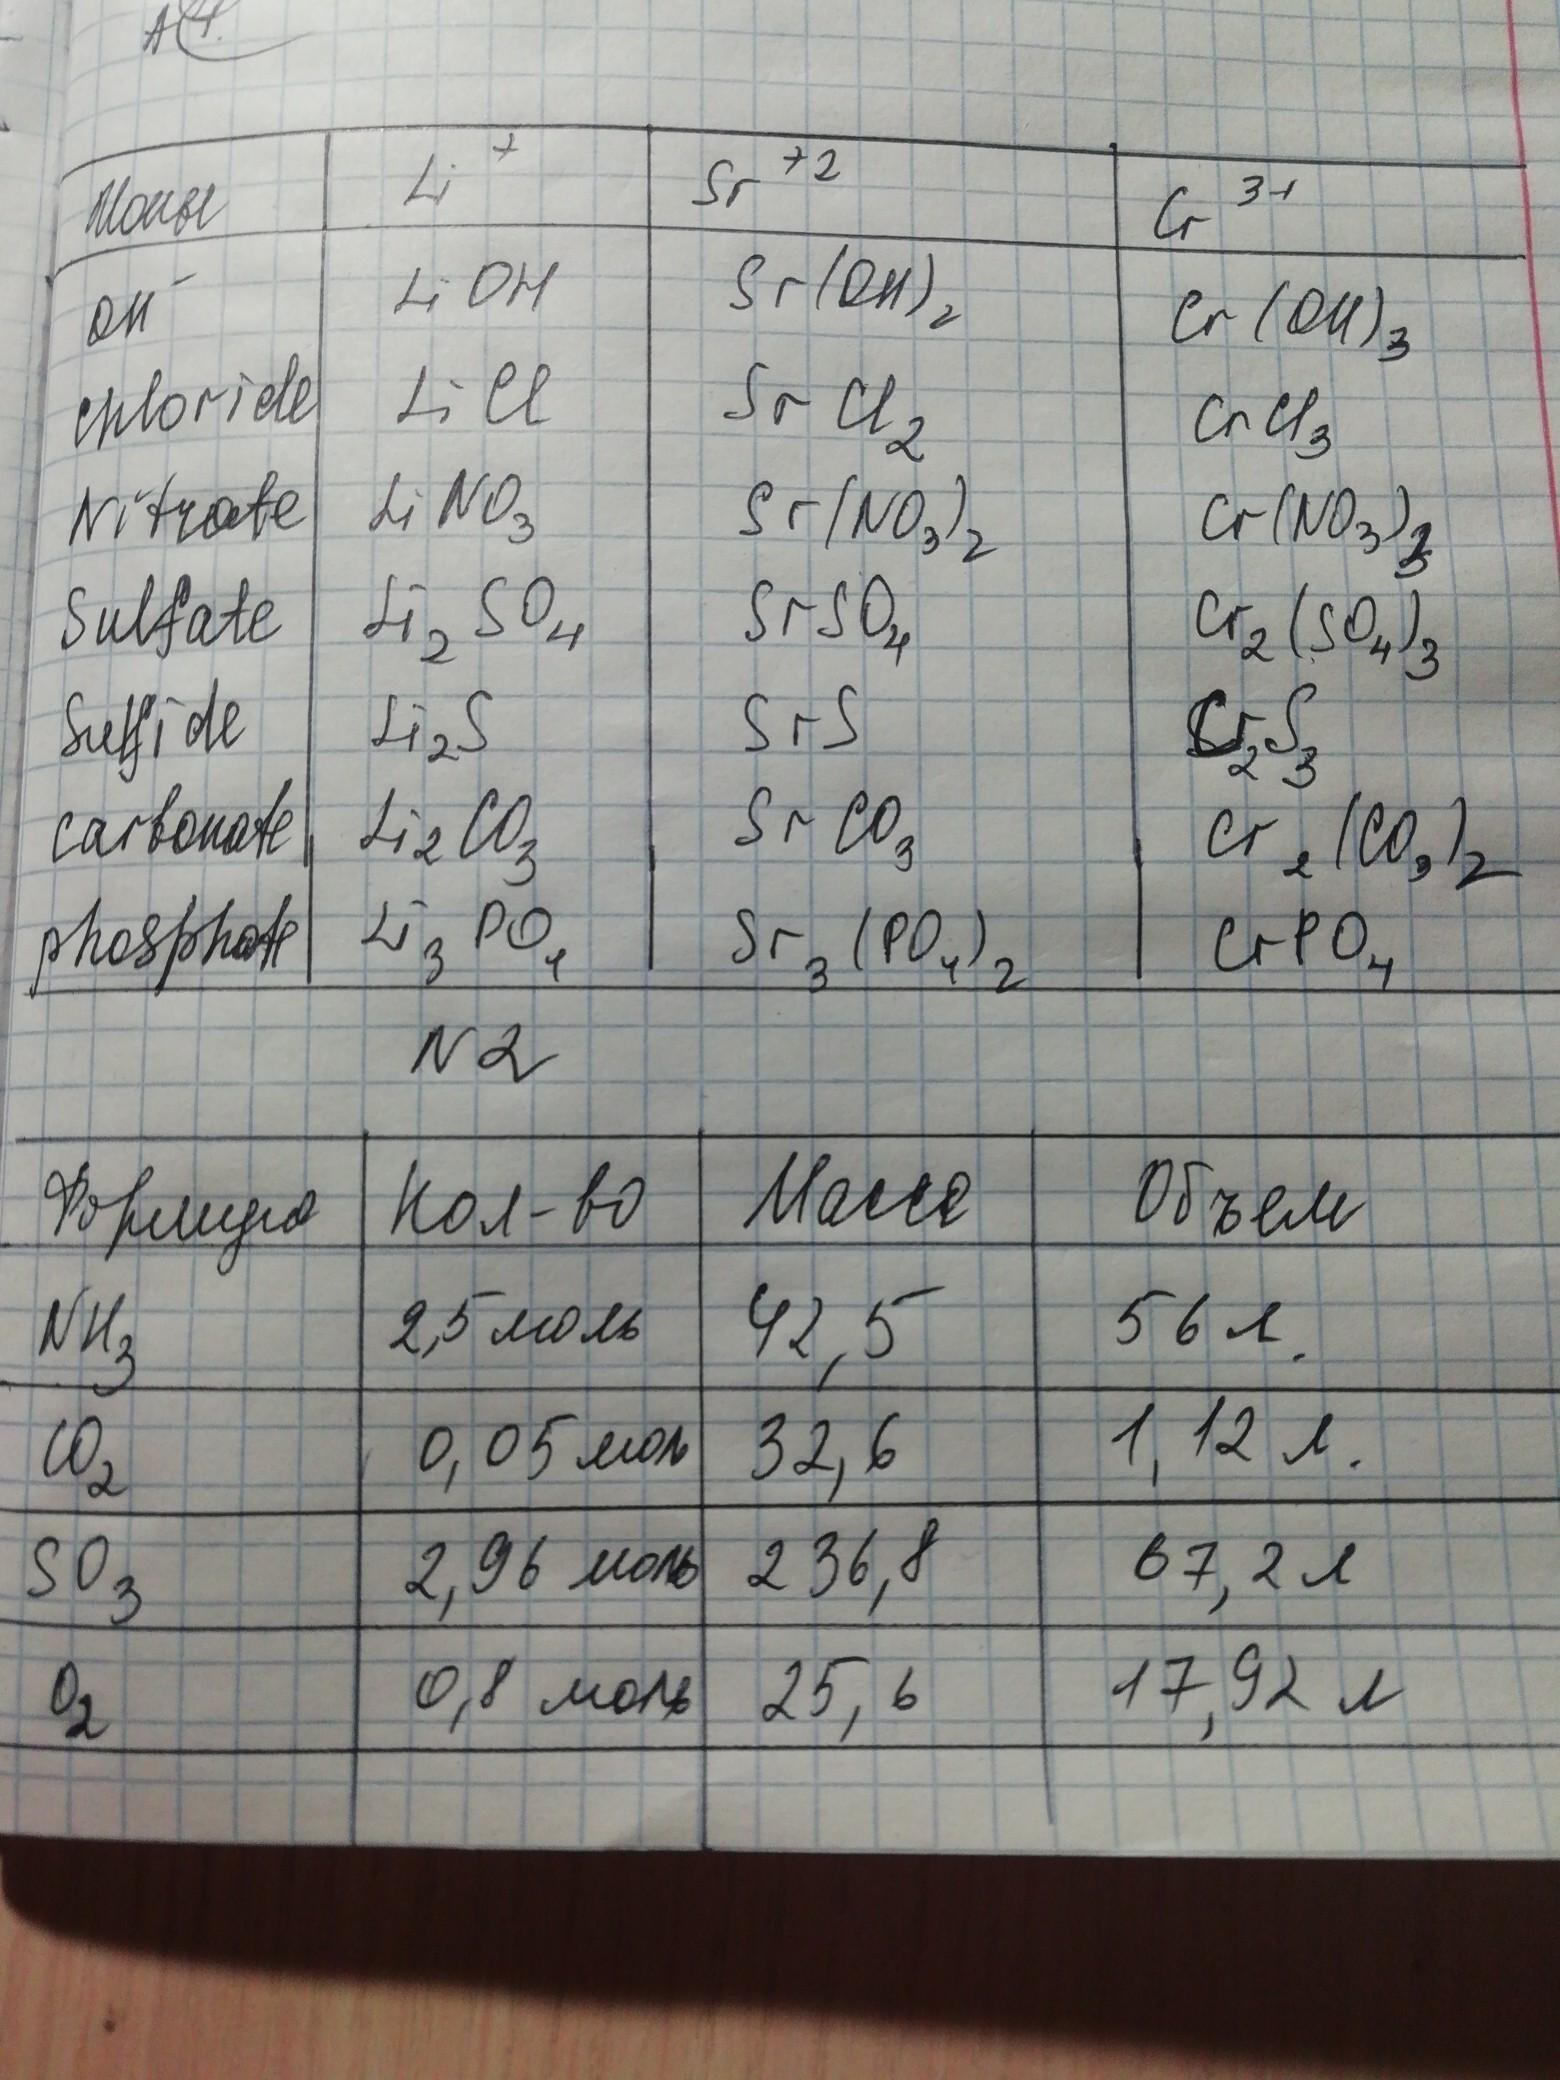 A4.
Ионы Li⁺ Sr⁺² Cr³⁺
OH⁻ LiOH Sr(OH)₂ Cr(OH)₃
chloride LiCl SrCl₂ CrCl₃
Nitrate LiNO₃ Sr(NO₃)₂ Cr(NO₃)₃
Sulfate Li₂SO₄ SrSO₄ Cr₂(SO₄)₃
Sulfide Li₂S SrS Cr₂S₃
carbonate Li₂CO₃ SrCO₃ Cr₂(CO₃)₂
phosphate Li₃PO₄ Sr₃(PO₄)₂ CrPO₄
N2
Формула Кол-во Масса Объем
NH₃ 2,5 моль 42,5 56 л.
CO₂ 0,05 моль 32,6 1,12 л.
SO₃ 2,96 моль 236,8 67,2 л
O₂ 0,8 моль 25,6 17,92 л